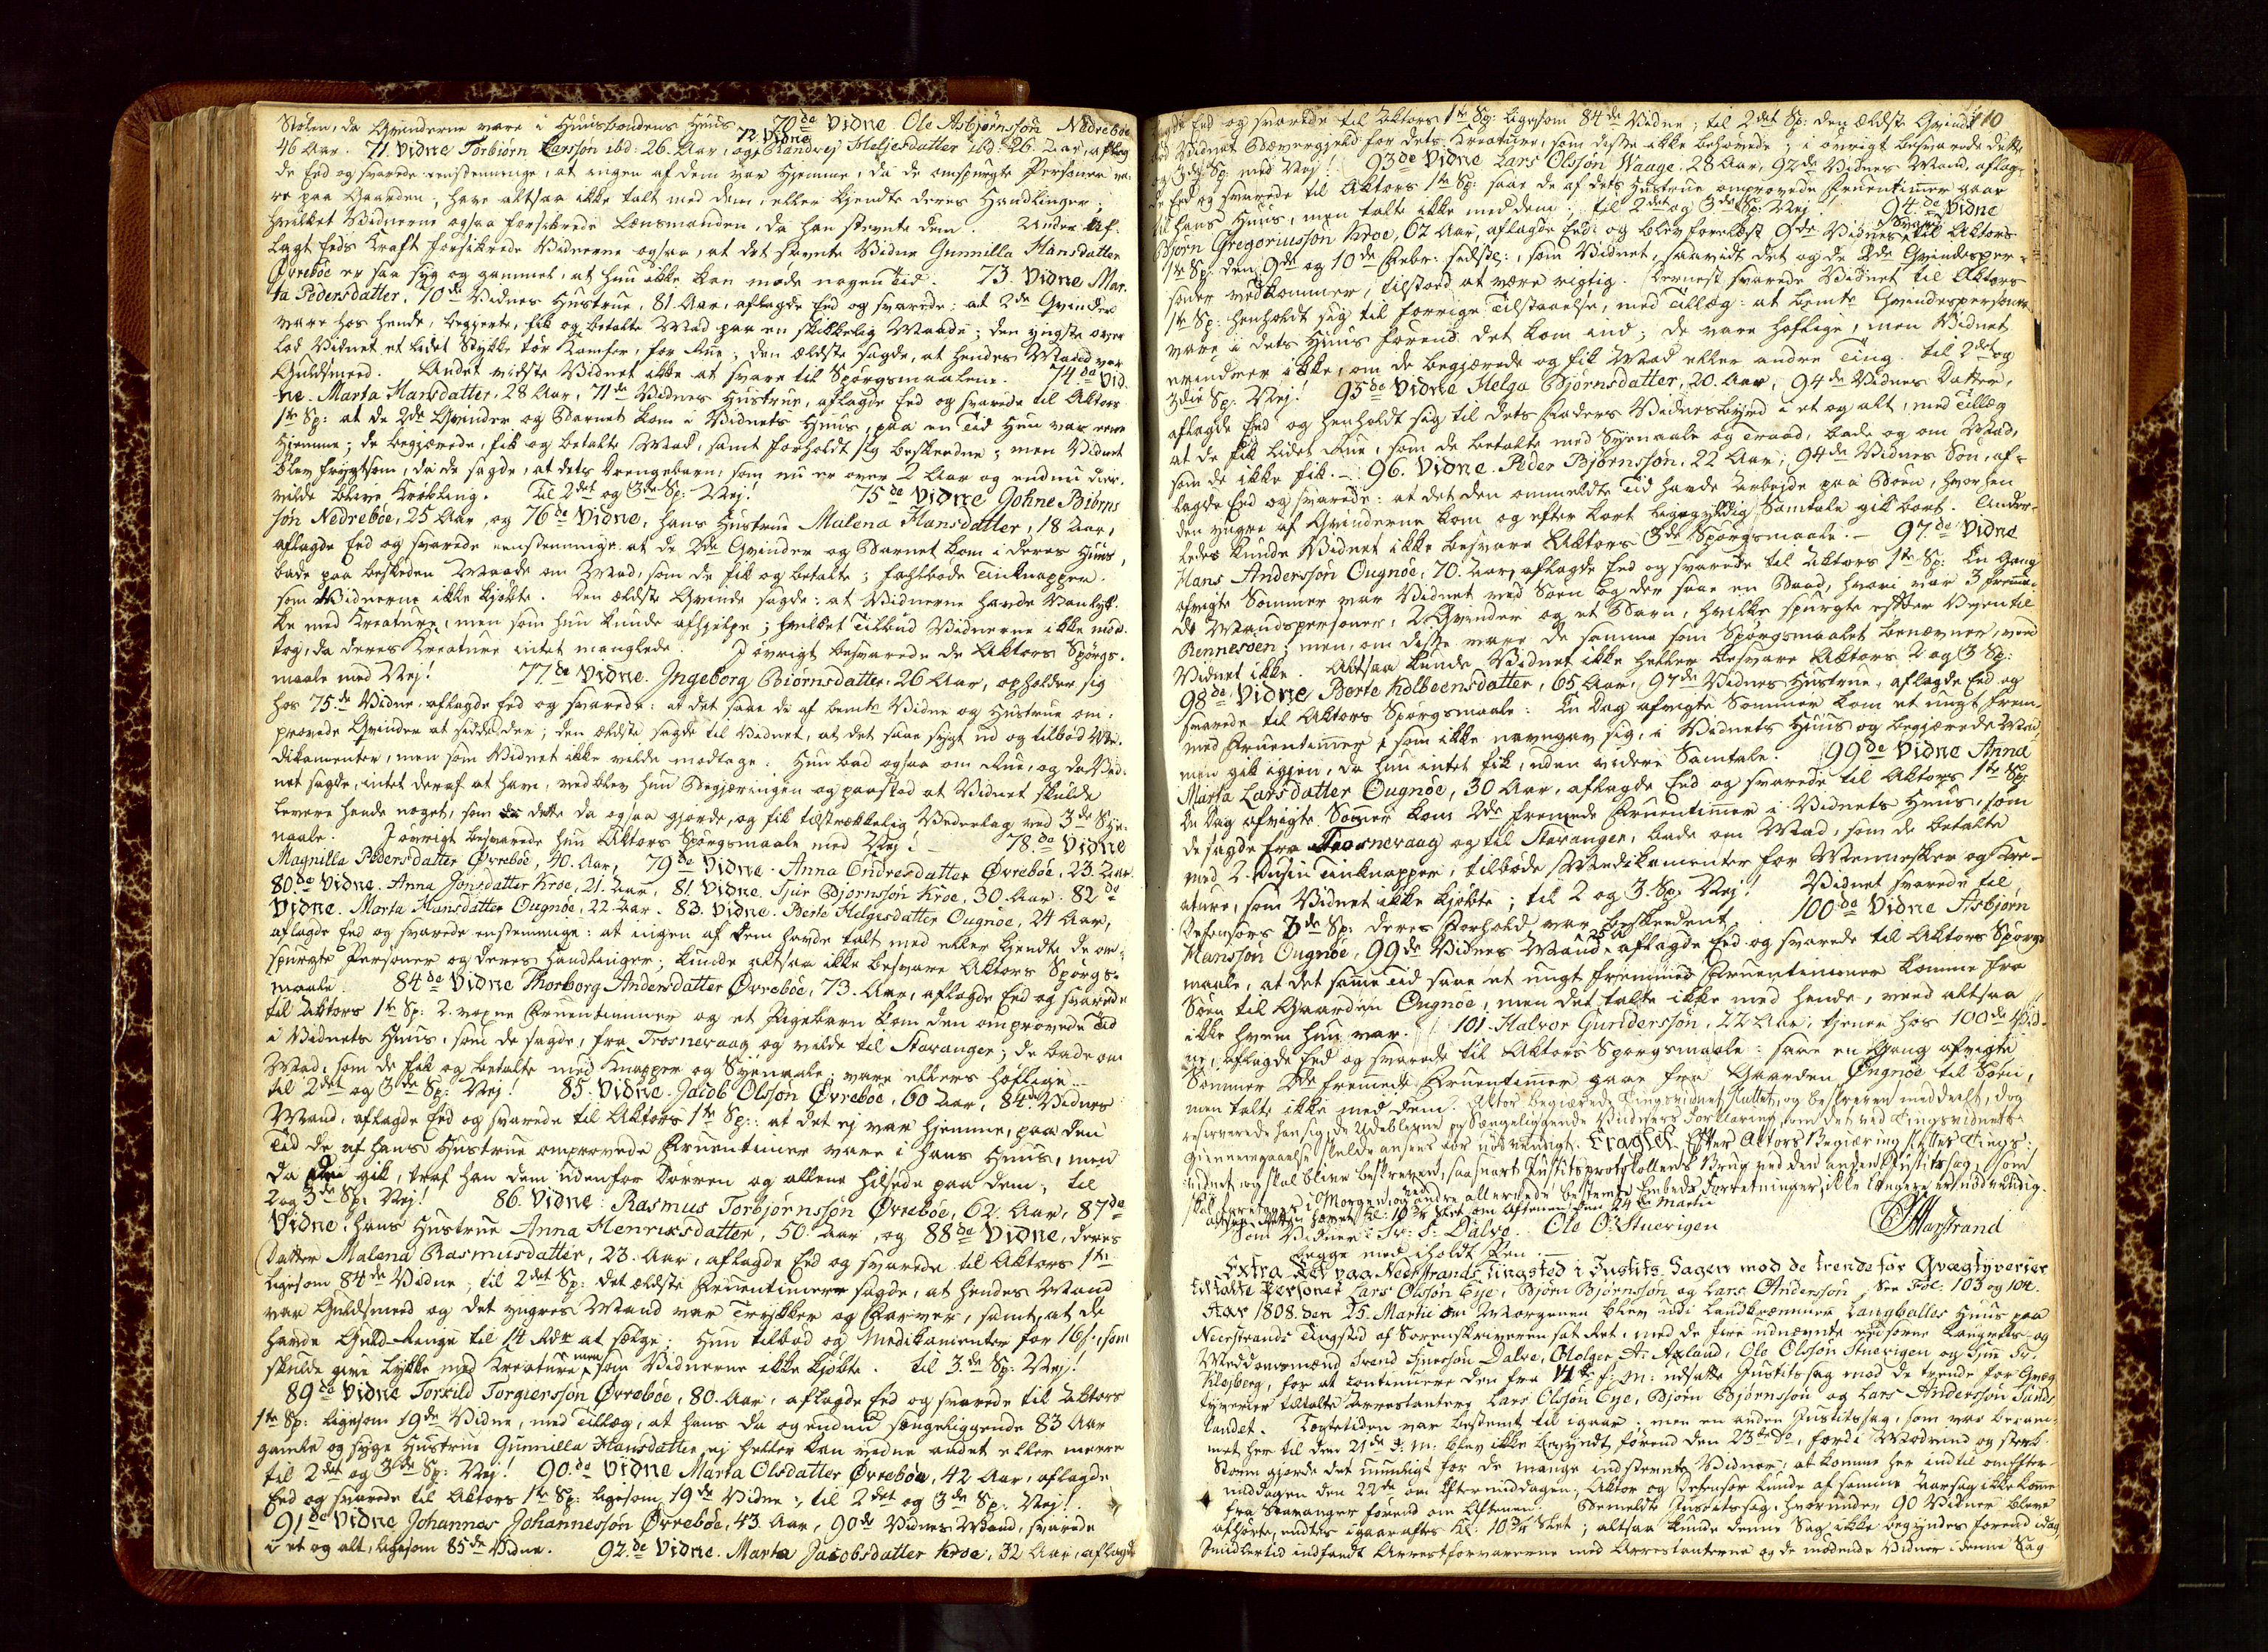 Stolen, da Qvinderne vare i Huusbondens Huus 70de Vidne. Ole Asbjørnssøn Nedrebøe
46 Aar. 71. Vidne Torbiørn Larssøn ibd: 26. Aar, og 72. Vidne Randvej Heljesdatter ibd: 26. Aar, aflag
de Eed og svarede eenstemmige, at ingen af dem var hjemme, da de omspurgte Personer va-
re paa Gaarden, have altsaa ikke talt med dem, eller kjendte deres Handlinger,
hvilket Vidnerne ogsaa forsikrede Lensmanden, da han stevnte dem. Under af-
lagt Eeds Kraft forsikrede Vidnerne ogsaa, at det stevnte Vidne Gunnilla Hansdatter
Øvrebøe er saa syg og gammel, at hun ikke kan møde nogen Tid. 73. Vidne Mar-
ta Pedersdatter, 70de Vidnes Hustrue, 81. Aar, aflagde Eed og svarede: at 2de Qvinder
vare hos hende, begjerte, fik og betalte Mad paa en skikkelig Maade; den yngste over
lod Vidnet et lidet Stykke tør Kamfer, for Rue; den ældste sagde, at hendes Mand var
Guldsmed. Andet vidste Vidnet ikke at svare til Spørgsmaalene. 74.de Vid-
ne. Marta Hansdatter, 28 Aar, 71de Vidnes Hustrue, aflagde Eed og svarede til Aktors
1te Sp: at de 2de Qvinder og Barnet kom i Vidnets Huus, paa en Tid hun var eene
hjemme; de begjærede, fik og betalte Mad, samt forholdt sig beskeedne; men Vidnet
blev frygtsom, da de sagde, at dets Drengebarn, som nu er over 2 Aar og endnu dier,
vilde blive Krøbling. Til 2det og 3de Sp: Nej! 75de Vidne Johne Biørns
søn Nedrebøe, 25 Aar, og 76de Vidne, hans Hustrue Malena Hansdatter, 18 Aar,
aflagde Eed og svarede eenstemmige: at de 2de Qvinder og Barnet kom i deres Huus,
bade paa beskeden Maade om Mad, som de fik og betalte; falbøde Tinknapper,
som Vidnerne ikke kjøbte. Den ældste Qvinde sagde: at Vidnerne havde Vanlyk-
ke med Kreature, men som hun kunde afhjelpe; hvilket Tilbud Vidnerne ikke mod-
tog, da deres Kreature intet manglede. I øvrigt besvarede de Aktors Spørgs-
maale med Nej! 77de Vidne. Ingeborg Biørnsdatter, 26 Aar, opholder sig
hos 75.de Vidne, aflagde Eed og svarede: at det saae de af bemte Vidne og Hustrue om-
prøvede Qvinder at sidde der; den ældste sagde til Vidnet, at det saae sygt ud og tilbød Me-
dikamenter, men som Vidnet ikke vilde modtage. Hun bad ogsaa om Rue, og da Vid-
net sagde, intet deraf at have, vedblev hun Begjæringen og paastod at Vidnet skulde
levere hende noget, som dette da ogsaa gjorde, og fik tilstrækkelig Vederlag ved 3de Sye-
naale. I øvrigt besvarede hun Aktors Spørgsmaale med Nej! 78.de Vidne
Magnilla Pedersdatter Øvrebøe, 40. Aar, 79de Vidne. Anna Ondresdatter Øvrebøe, 23. Aar.
80.de Vidne. Anna Jonsdatter Kroe, 21. Aar, 81. Vidne. Sjur Bjørnssøn Kroe, 30. Aar. 82de
Vidne. Marta Hansdatter Ougnøe, 22. Aar. 83. Vidne. Berte Helgesdatter Ougnøe, 24 Aar,
aflagde Eed og svarede enstemmige: at ingen af dem havde talt med eller kjendte de om-
spurgte Personer og deres Handlinger; kunde altsaa ikke besvare Aktors Spørgs-
maale. 84de Vidne Thorborg Andersdatter Øvrebøe, 73. Aar, aflagde Eed og svarede
til Aktors 1te Sp: 2. voxne Fruentimmer og et Pigebarn kom den omprøvede Tid
i Vidnets Huus, som de sagde, fra Trosnevaag og vilde til Stavanger; de bade om
Mad, som de fik og betalte med Knapper og Syenaale; vare ellers høflige.
til 2det og 3de Sp: Nej! 85. Vidne. Jacob Olssøn Øvrebøe, 60 Aar, 84de Vidnes
Mand, aflagde Eed og svarede til Aktors 1te Sp: at det ej var hjemme, paa den
Tid de af hans Hustrue omprøvede Fruentimer vare i hans Huus, men
da de gik, traf han dem udenfor Dørren og allene hilsede paa dem; til
2 og 3de Sp: Nej! 86. Vidne: Rasmus Torbjørnssøn Øvrebøe, 62. Aar, 87de
Vidne. hans Hustrue Anna Henriksdatter, 50. Aar, og 88de Vidne, deres
Datter Malena Rasmusdatter, 23. Aar, aflagde Eed og svarede til Aktors 1te
ligesom 84de Vidne; til 2det Sp: det ældste Fruentimer sagde, at hendes Mand
var Guldsmed og det yngres Mand var Trykker og Farver, samt, at de
havde Guld-Ringe til 14 Rdr at sælge. Hun tilbød og Medikamenter for 16 s., som
skulde give Lykke med Kreature, men som Vidnerne ikke kjøbte. til 3.de Sp: Nej!
89de Vidne Torkild Torgierssøn Øvrebøe, 80. Aar, aflagde Eed og svarede til Aktors
1te Sp: ligesom 19de Vidne, med Tillæg, at hans da og endnu sængeliggende 83 Aar
gamle og syge Hustrue Gunnilla Hansdatter, ej heller kan vidne andet eller meere
til 2det og 3de Sp: Nej! 90.de Vidne Marta Olsdatter Øvrebøe, 42 Aar, aflagde
Eed og svarede til Aktors 1te Sp: ligesom 19de Vidne; til 2det og 3de Sp: Nej!
91de Vidne Johannes Johannessøn Øvrebøe, 43. Aar, 90de Vidnes Mand, svarede
i et og alt, ligesom 85de Vidne. 92.de Vidne. Marta Jacobsdatter Kroe, 32 Aar, aflagde
110
lagde Eed og svarede til Aktors 1te Sp: ligesom 84de Vidne; til 2det Sp: den ældste Qvinde
bød Vidnet Bævergjeld for dets Kreature, som disse ikke behøvede; i øvrigt besvarede dette
og 3die Sp: med Nej! 93de Vidne Lars Olssøn Waage, 28 Aar, 92de Vidnes Mand, aflag-
de Eed og svarede til Aktors 1te Sp: saae de af dets Hustrue omprøvede Fruentimer gaae
til hans Huus, men talte ikke med dem; til 2det og 3de Sp: Nej! 94.de Vidne
Bjørn Gregoriussøn Kroe, 62 Aar, aflagde Eed, og blev forelæst 9de Vidnes Svar til Aktors
1te Sp: den 9de og 10de Febr: sidstl:, som Vidnet, saavidt det og de 2de Qvindesper-
soner vedkommer, tilstoed at være rigtig. Dernest svarede Vidnet til Aktors
1te Sp. henholdt sig til forrige Tilstaaelse, med Tillæg: at bemte Qvindespersoner
vare i dets Huus førend det kom ind; de vare høflige, men Vidnet
erindrer ikke, om de begjærede og fik Mad eller andre Ting. til 2det og
3die Sp: Nej! 95de Vidne Helga Bjørnsdatter, 20. Aar, 94de Vidnes Datter,
aflagde Eed og henholdt sig til dets Faders Vidnesbyrd i et og alt, med Tillæg
at de fik lidet Rue, som de betalte med Syenaale og Traad, bade og om Mad,
som de ikke fik. 96. Vidne. Peder Bjørnssøn, 22 Aar, 94de Vidnes Søn, af-
lagde Eed og svarede: at det den ommeldte Tid havde Arbejde paa Bøen, hvorhen
den yngre af Qvinderne kom og efter kort ligegyldig Samtale gik bort. Ander-
ledes kunde Vidnet ikke besvare Aktors 3de Spørgsmaale. 97.de Vidne
Hans Anderssøn Ougnøe, 70. Aar, aflagde Eed og svarede til Aktors 1te Sp: En Gang
afvigte Sommer var Vidnet ved Søen og der saae en Baad, hvori var 3 fremme-
de Mandspersoner, 2 Qvinder og et Barn, hvilke spurgte efter Vejen til
Rennesøen; men, om disse vare de samme som Spørgsmaalet benævner, veed
Vidnet ikke. Altsaa kunde Vidnet ikke heller besvare Aktors 2 og 3 Sp:
98de Vidne Berte Kolbeensdatter, 65 Aar, 97de Vidnes Hustrue, aflagde Eed og
svarede til Aktors Spørgsmaale: En Dag afvigte Sommer kom et ungt frem-
med Fruentimer, som ikke navngav sig, i Vidnets Huus og begjærede Mad
men gik igjen, da hun intet fik, uden videre Samtale. 99de Vidne Anna
Marta Larsdatter Ougnøe, 30 Aar, aflagde Eed og svarede til Aktors 1te Sp:
En Dag afvigte Sommer kom 2de fremede Fruentimer i Vidnets Huus, som
de sagde fra Trosnevaag og til Stavanger, bade om Mad, som de betalte
med 2. Dusin Tinknapper; tilbøde Medikamenter for Mennesker og Kre-
ature, som Vidnet ikke kjøbte; til 2 og 3. Sp: Nej! Vidnet svarede til
Defensors 3de Sp: deres Forhold var beskeedent. 100de Vidne Asbjørn
Monssøn Ougnøe, 99de Vidnes Mand, aflagde Eed og svarede til Aktors Spørgs
maale, at det samme Tid saae et ungt fremmed Fruentimmer komme fra
Søen til Gaarden Ougnøe, men det talte ikke med hende, veed altsaa
ikke hvem hun var. 101. Halvor Guntderssøn, 22 Aar, tjener hos 100de Vid-
ne, aflagde Eed og svarede til Aktors Spørgsmaale: saae en Gang afvigte
Sommer 2de fremmede Fruentimer gaae fra Gaarden Ougnøe til Søen,
men talte ikke med dem. Aktor begjærede Tingsvidnet sluttet, og beskreven meddeelt, dog
reserverede han sig, de Udeblevne og Sængeliggende Vidners Forklaring, om det ved Tingsvidnets
Giennemgaaelse skulde ansees for nødvendigt. Eragtet. Efter Aktors Begiæring sluttes Tings-
vidnet og skal blive beskreven, saasnart Justitsprotokollens Brug ved den anden Justitssag, som
skal foretages i Morgen, og ved andre allerede bestemte Embeds Forretninger, ikke længere er nødvendig.
altsaa Retten hævet Kl: 10¾ Slet om Aftenen den 24de Martii
Som Vidner: Sv: S: Dalve. Ole O. Stuevigen Marstrand
begge med iholdt Pen.
Extra Ret paa Neerstrands Tingsted i Justits Sagen mod de trende for Qvægtyverier
tiltalte Personer Lars Olssøn Eye, Bjørn Bjørnssøn og Lars Anderssøn. See Fol: 103 og 104.
Aar 1808. den 25. Martii om Morgenen blev udi Landkræmmer Langballes Huus paa
Neerstrands Tingsted af Sorenskriveren sat Ret, med de fire udnævnte edsorne Laugrettes og
Meddomsmænd Svend Svensøn Dalve, Holger A: Axland, Ole Olssøn Stuevigen og Hin Sv:
Kilesberg, for at continuere den fra 14de f: M: udsatte Justitssag mod de trende for Qvæg
tyverier tiltalte Arrestantere Lars Olssøn Eye, Bjørn Bjørnssøn og Lars Anderssøn Sands-
landet. Tægtetiden var bestemt til igaar; men en anden Justitssag, som var beram-
met her til den 21de d: M: blev ikke begyndt førend den 23de do, fordi Modvind og sterk
Storm gjorde det umuligt for de mange indstevnte Vidner, at komme her indtil om Efter-
middagen den 22de om Eftermiddagen; Aktor og Defensor kunde af samme Aarsag ikke komme
fra Stavanger førend om Aftenen. Bemeldte Justitssag, hvorunder 90 Vidner bleve
afhørte, endtes igaar aftes Kl: 10¾ Slet; altsaa kunde denne Sag ikke begyndes førend idag.
Imidlertid indfandt Arrestforvarerne med Arrestanterne og de mødende Vidner i denne Sag